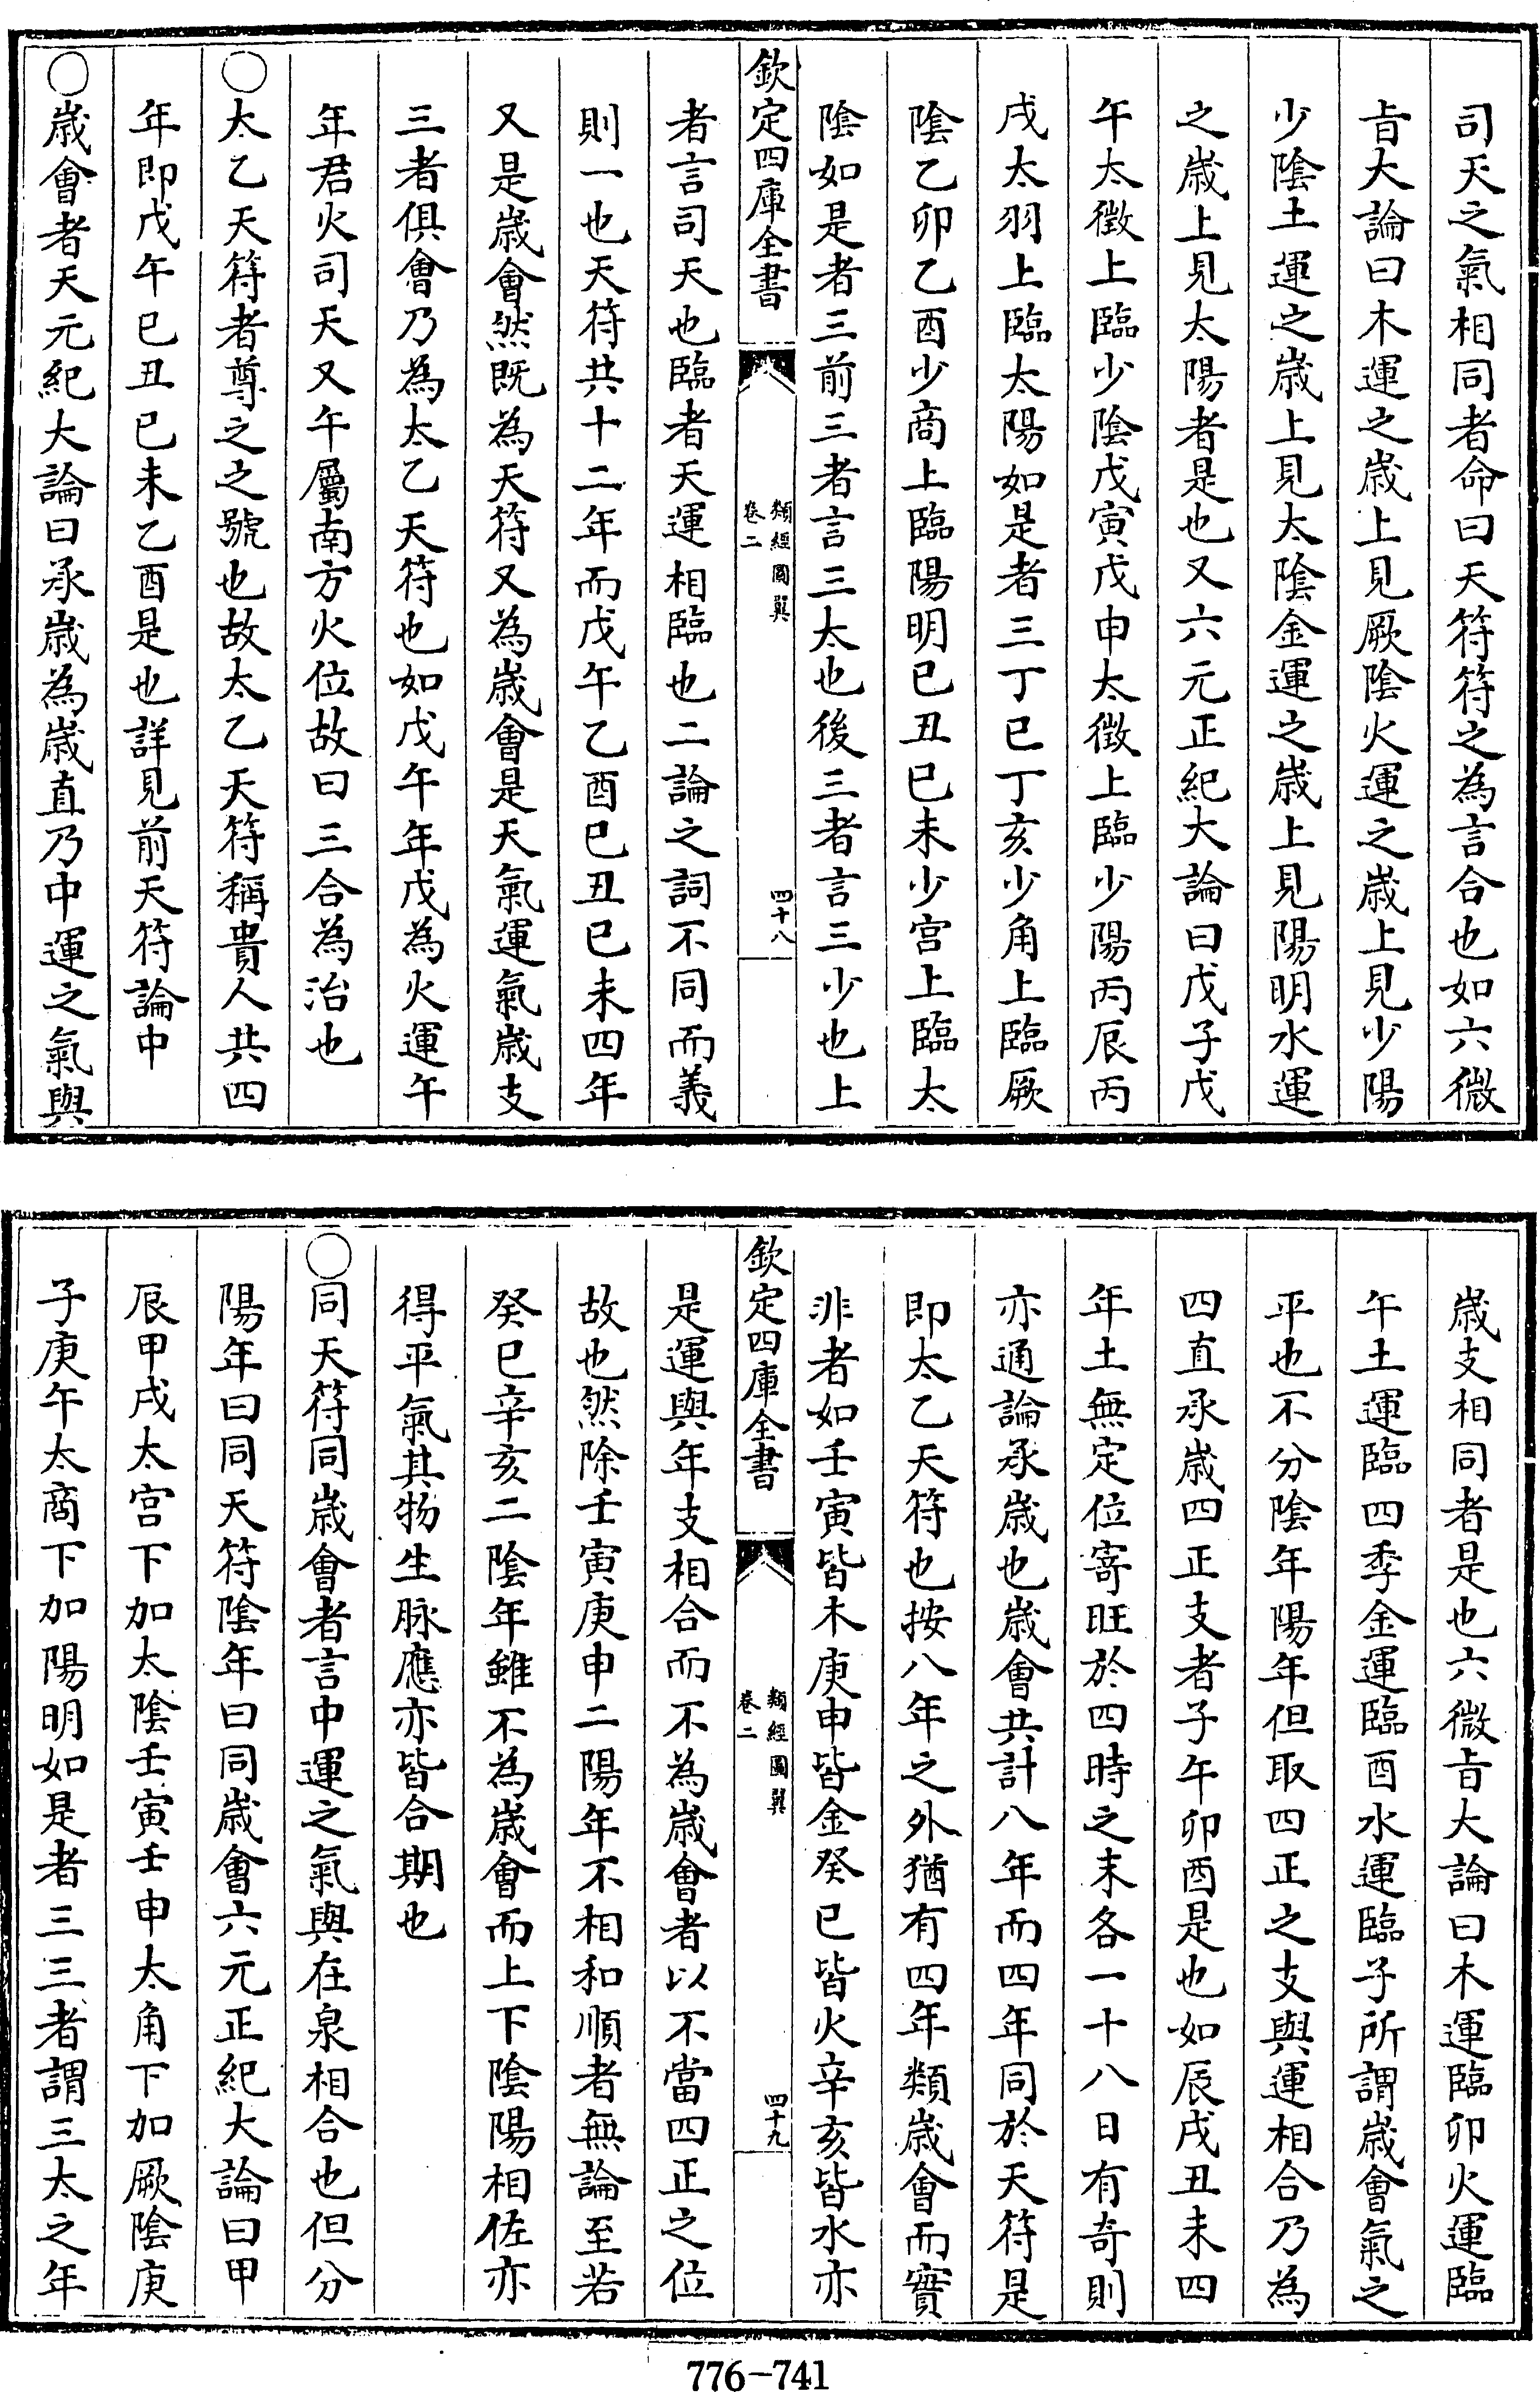 司天之氣相同者命曰天符符之為言合也如六微
㫖大論曰木運之歳上見厥陰火運之歳上見少陽
少陰土運之歳上見太陰金運之歳上見陽明水運
之歳上見太陽者是也又六元正紀大論曰戊子戊
午太徴上臨少陰戊寅戊申太徴上臨少陽丙辰丙
戌太羽上臨太陽如是者三丁巳丁亥少角上臨厥
陰乙卯乙酉少商上臨陽明己丑己未少宫上臨太
陰如是者三前三者言三太也後三者言三少也上
欽定四庫全書
類經圖翼
卷二
四十八
者言司天也臨者天運相臨也二論之詞不同而義
則一也天符共十二年而戊午乙酉己丑己未四年
又是歳會然既為天符又為歳會是天氣運氣歳支
三者俱會乃為太乙天符也如戊午年戊為火運午
年君火司天又午屬南方火位故曰三合為治也
○太乙天符者尊之之號也故太乙天符稱貴人共四
年即戊午己丑己未乙酉是也詳見前天符論中
○歳會者天元紀大論曰承歳為歳直乃中運之氣與
歳支相同者是也六微㫖大論曰木運臨卯火運臨
午土運臨四季金運臨酉水運臨子所謂歳會氣之
平也不分陰年陽年但取四正之支與運相合乃為
四直承歳四正支者子午卯酉是也如辰戌丑未四
年土無定位寄旺於四時之末各一十八日有竒則
亦通論承歳也歳會共計八年而四年同於天符是
即太乙天符也按八年之外猶有四年類歳會而實
非者如壬寅皆木庚申皆金癸巳皆火辛亥皆水亦
欽定四庫全書
類經圖翼
卷二
四十九
是運與年支相合而不為歳會者以不當四正之位
故也然除壬寅庚申二陽年不相和順者無論至若
癸巳辛亥二陰年雖不為歳會而上下陰陽相佐亦
得平氣其物生脉應亦皆合期也
○同天符同歳會者言中運之氣與在泉相合也但分
陽年曰同天符陰年曰同歳會六元正紀大論曰甲
辰甲戌太宫下加太陰壬寅壬申太角下加厥陰庚
子庚午太商下加陽明如是者三三者謂三太之年
776-741